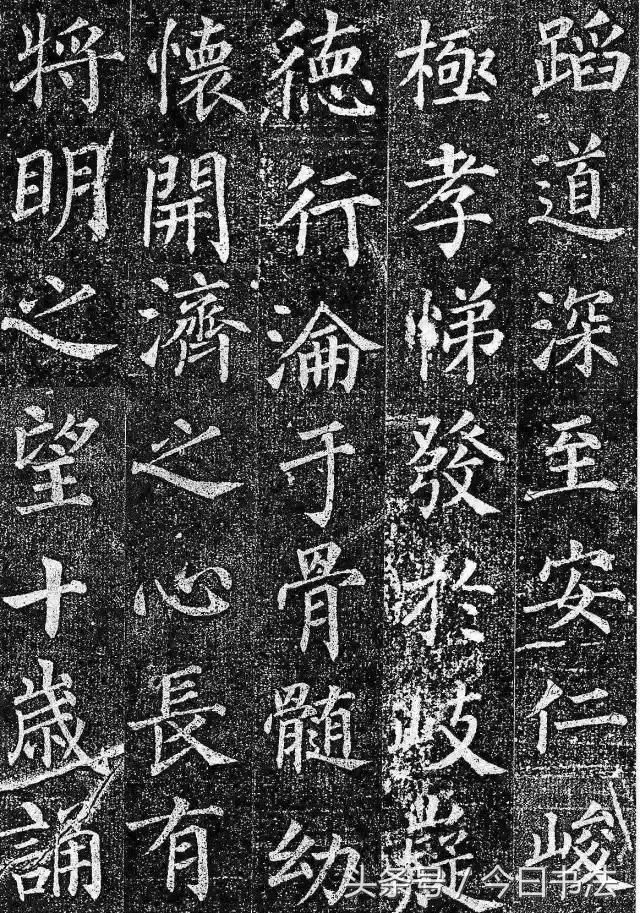 蹈道深至安仁峻
極孝悌發於岐嶷
德行淪于骨髓幼
懷開濟之心長有
將明之望十歲誦
头条号 / 今日书法